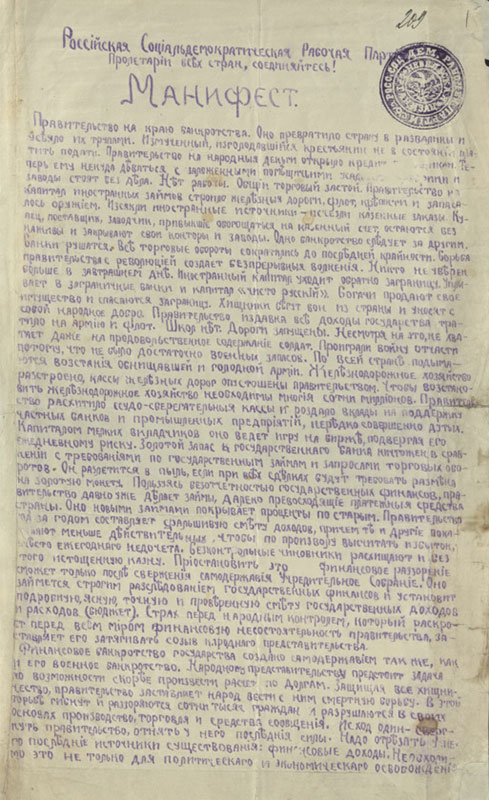 209
Россійская Соціальдемократическая Рабочая Парт
Пролетаріи всѣх стран, соединяйтесь!
Манифест.
Правительство на краю банкротства. Оно превратило страну в развалины и
усѣяло их трупами. Измученный, изголодавшійся крестьянин не в состояніи пла
тить подати. Правительство на народныя деньги открыло кредит Те
перь ему некуда дѣваться с заложенными помѣщичьими и
заводы стоят без дѣла. Нѣт работы. Общій торговый застой. Правительство на
капитал иностранных займов строило желѣзныя дороги, флот, крѣпости и запаса
лось оружіем. Изсякли иностранные источники исчезли казенные заказы. Ку
пец, поставщик, заводчик, привыкшіе обогощаться на казенный счет, остаются без
наживы и закрывают свои конторы и заводы. Одно банкротство слѣдует за другим.
Банки рушатся. Всѣ торговые обороти сократились до послѣдней крайности. Борьба
правительства с революціей создает безпрерывныя волненія. Никто не увѣрен
больше в завтрашнем днѣ. Иностранный капитал уходит обратно заграницу. Уплы
вает в заграничные банки и капитал «чисто русскій». Богачи продают свое
имущество и спасаются заграницу. Хищники бѣгут вон из страны и уносят с
собой народное добро. Правительство издавна всѣ доходы государства тра
тило на армію и флот. Школ нѣт. Дороги запущены. Несмотря на это, не хва
тает даже на продовольственное содержаніе солдат. Проиграли войну отчасти
потому, что не было достаточно военных запасов. По всей странѣ подыма
ются возстанія обнищавшей и голодной арміи. Желѣзнодорожное хозяйство
разстроено, кассы желѣзных дорог опустошены правительством. Чтобы возстано
вить желѣзнодорожное хозяйство необходимы многія сотни милліонов. Правител
ство расхитило ссудо-сберегательныя кассы и роздало вклады на поддержку
частных банков и промышленных предпріятій, нерѣдко совершенно дутых.
Капиталом мелких вкладчиков оно ведет игру на биржѣ, подвергая его
ежедневному риску. Золотой запас государственнаго банка ничтожен в срав
неніи с требованіями по государственным займам и запросами торговых обо
ротов. Он разлетится в пыль, если при всѣх сдѣлках будут требовать размѣна
на золотую монету. Пользуясь безотчетностью государственных финансов, пра
вительство давно уже дѣлает займы, далеко превосходящіе платежныя средства
страны. Оно новыми займами покрывает проценты по старым. Правительство
год за годом составляет фальшивую смѣту доходов, причем тѣ и другіе пока
зывают меньше дѣйствительных, чтобы по произволу высчитать избыток,
вмѣсто ежегоднаго недочета. Безконтрольные чиновники расхищают и без
того истощенную казну. Пріостановить это финансовое разореніе
сможет только послѣ сверженія самодержавія Учредительное Собраніе. Оно
займется строгим разслѣдованіем государственных финансов и установит
подробную, ясную, точную и провѣренную смѣту государственных доходов
и расходов (бюджет). Страх перед народным контролем, который раскро
ет перед всѣм міром финансовую несостоятельность правительства, за
ставляет его затягивать созыв народнаго представительства.
Финансовое банкротство государства создано самодержавіем так же, как
и его военное банкротство. Народному представительству предстоит задача
по возможности скорѣе произвести расчет по долгам. Защищая все хищни
чество, правительство заставляет народ вести с ним смертную борьбу. В этой
борьбѣ гибнут и разоряются сотни тысяч граждан и разрушаются в своих
основах производство, торговля и средства сообщенія. Исход один - сверг
нуть правительство, отнять у него послѣднія силы. Надо отрѣзать у не
го послѣдній источник существованія: финансовые доходы. Необходи
мо это не только для политическаго и экономическаго освобожденія